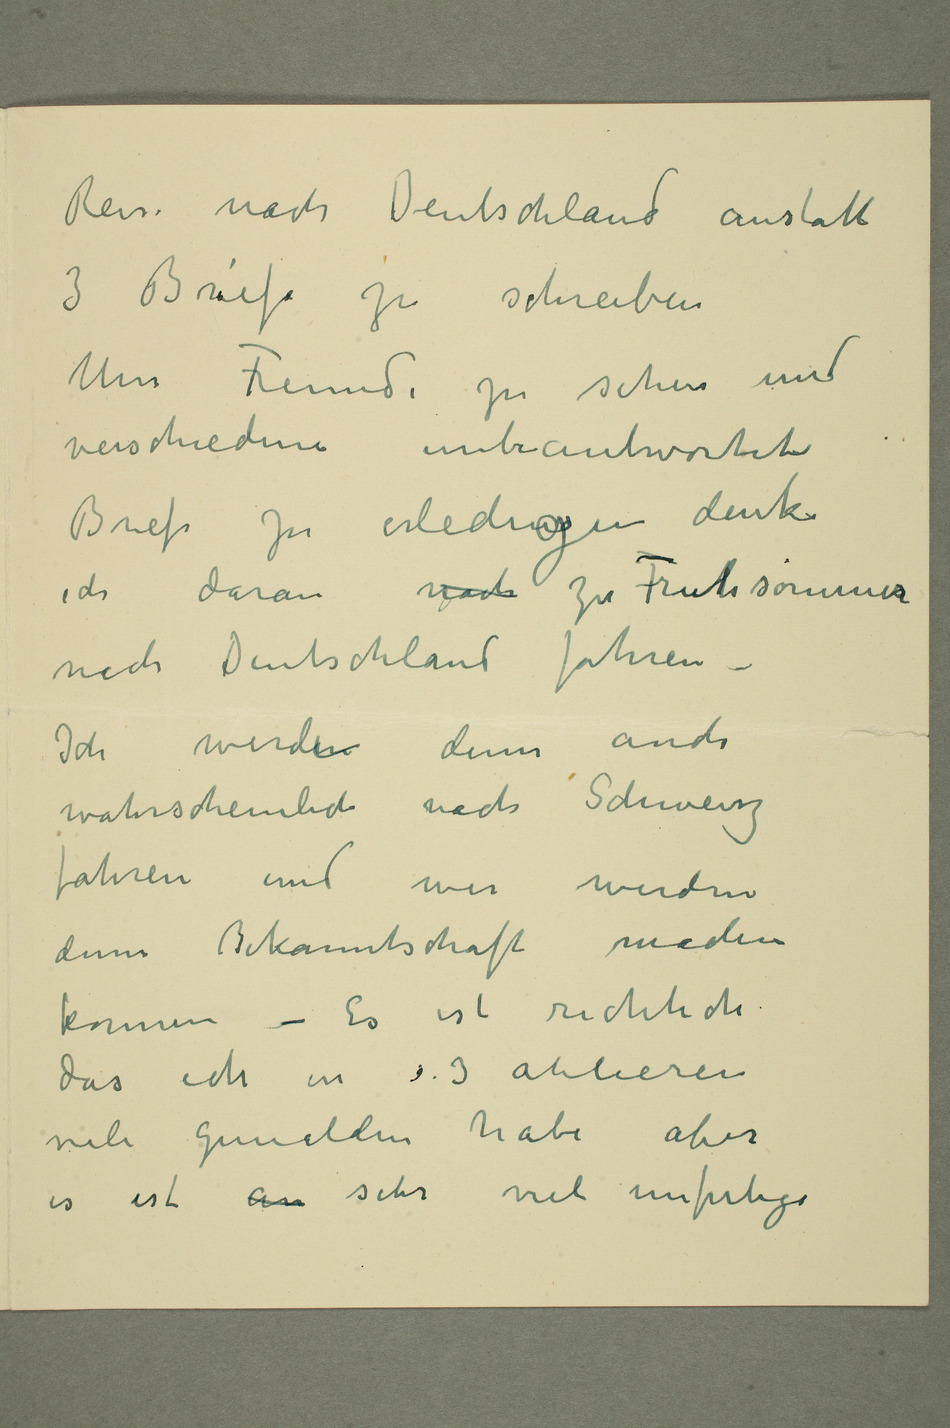 Reise nach Deutschland anstatt
3 Briefe zu schreiben
Um Freunde zu sehen und
verschiedene unbeantwortete
Briefe zu erledigen denke
ich daran nach zu Fruhsommer
nach Deutschland fahren –
Ich werden denn auch
wahrscheinlich nach Schweisz
fahren und wir werden
denn Bekanntschaft machen
konnen – Es ist richtich
das ich in 3 atelieren
viele gemalden habe aber
es ist an sehr viel unfertige